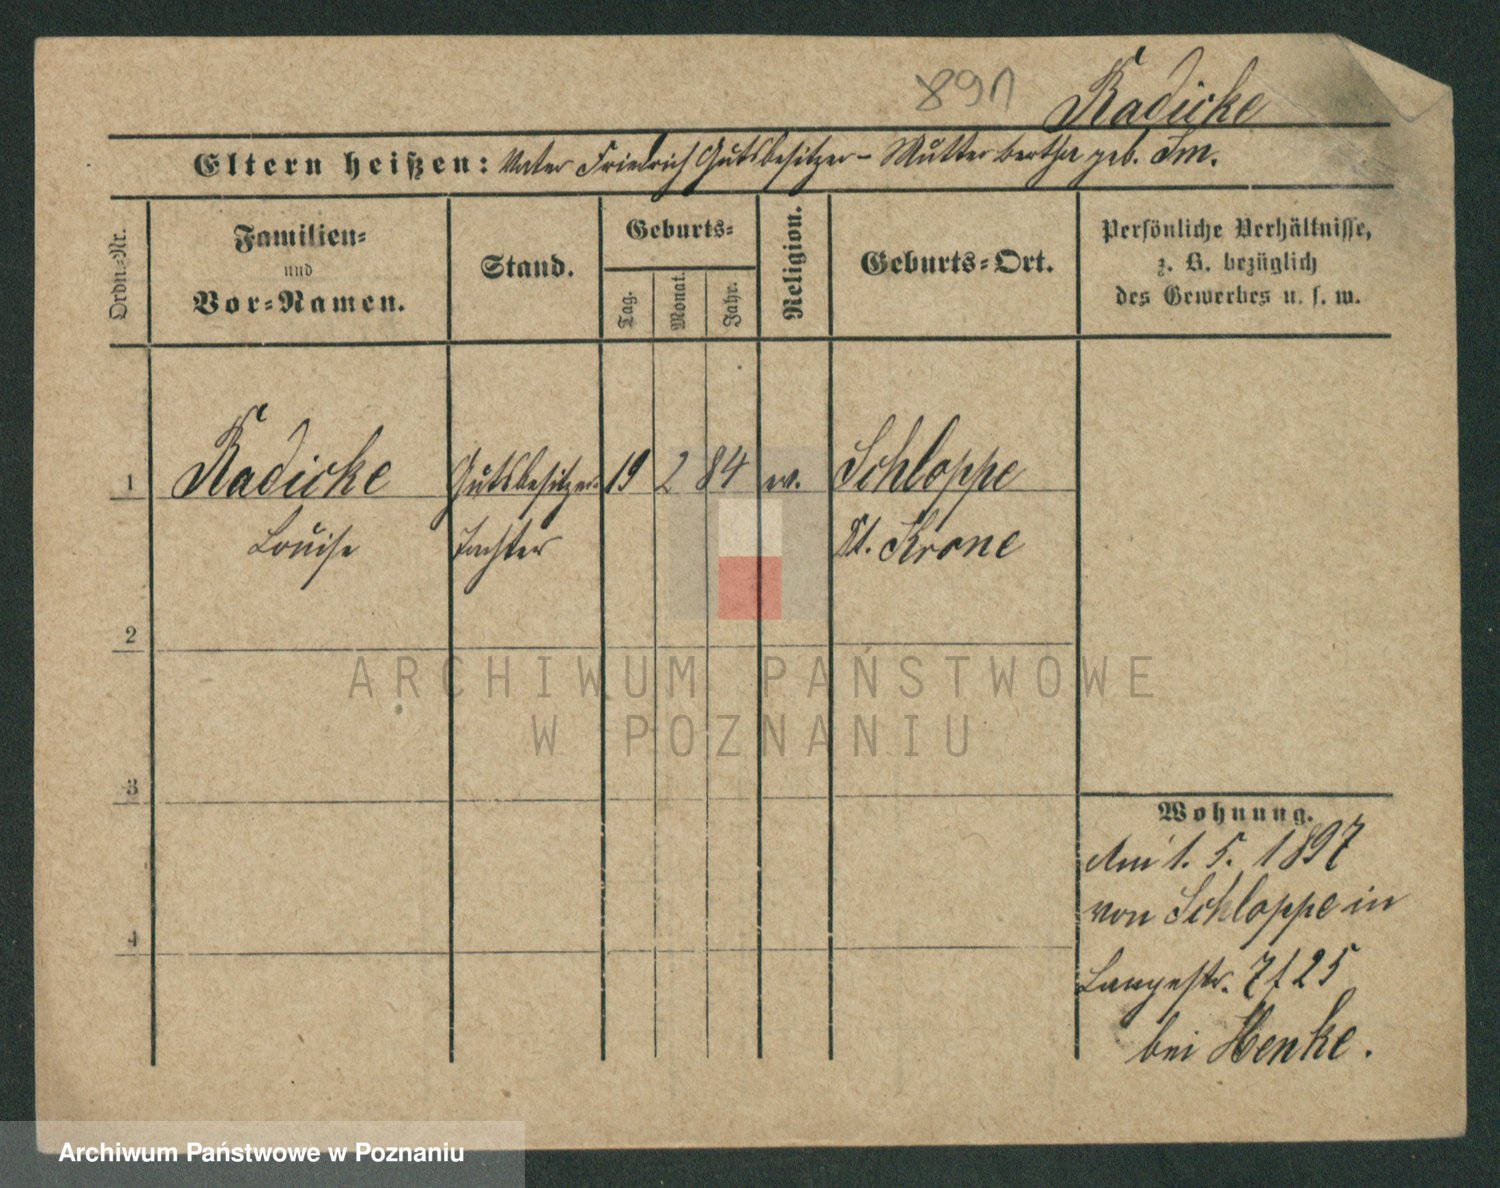 891
Radicke
Eltern heißen: Vater Friedrich Gutsbesitzer – Mutter Bertha geb. Im.
Ordn.-Nr.
Familien-
und
Vor-Namen.
Stand.
Geburts-
Tag.
Monat.
Jahr.
Religion.
Geburts-Ort.
Persönliche Verhältnisse,
z. B. bezüglich
des Gewerbes u. s. w.
1 Radicke Gutsbesitzer- 19 2 84 ev. Schloppe
Louise Tochter Dt. Krone
2
3
4
Wohnung.
Am 1. 5. 1897
von Schloppe in
Langestr. 7 / 25
bei Henke.
ARCHIWUM PAŃSTWOWE
W POZNANIU
Archiwum Państwowe w Poznaniu